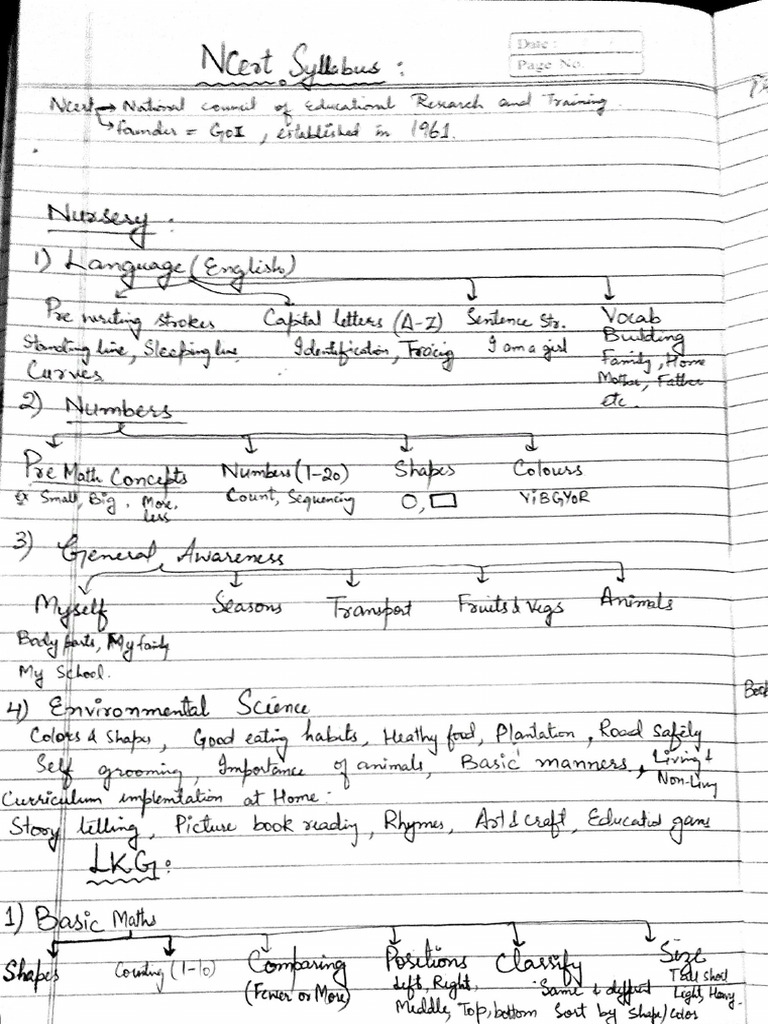 Date :
Page No.
NCert Syllabus :
Ncert → National council of Educational Research and Training.
founder = GoI , established in 1961.
Nursery :
1) Language (English)
Pre writing strokes Capital letters (A-Z) Sentence Str. Vocab Building
Standing line, Sleeping line Identification, Tracing I am a girl Family, Home
Curves Mother, Father
etc.
2) Numbers
Pre Math Concepts Numbers (1-20) Shapes Colours
Ex Small, Big, More, less Count, Sequencing ViBGYoR
3) General Awareness
Myself Seasons Transport Fruits & Vegs Animals
Body parts, My family
My School.
4) Environmental Science
Colors & Shapes, Good eating habits, Healthy food, Plantation, Road safety
Self grooming, Importance of animals, Basic manners, Living &
Non-Living
Curriculum implemtation at Home :
Story telling, Picture book reading, Rhymes, Art & craft, Educatio games
LKG :
1) Basic Maths
Shapes Counting (1-10) Comparing Positions Classify Size
(Fewer or More) Left, Right, Same & different Tall short
Middle, Top, bottom Sort by shape/color Light, Heavy.